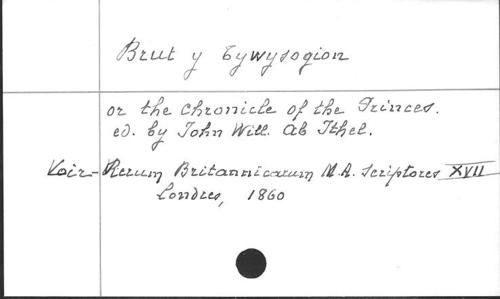 Brut y tywysogion
or the Chronicle of the Princes.
ed. by John Will. Ab Ithel.
Voir - Rerum Britannicarum M.A. Scriptores XVII
Londres, 1860